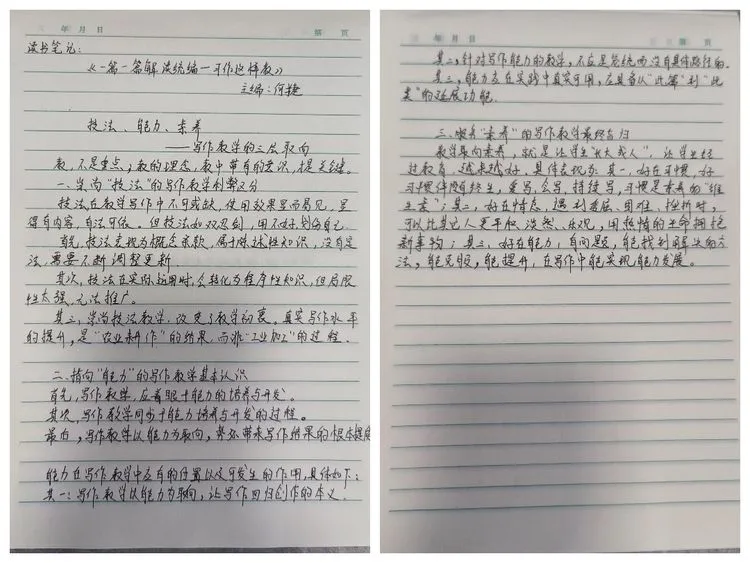 年 月 日 第 页
读书笔记:
《一篇一篇解读统编—习作这样教》
主编:何捷
技法、能力、素养
——写作教学的三层取向
教,不是重点;教的理念,教中带有的意识,很关键。
一、崇尚“技法”的写作教学利弊又分
技法在写作教学中不可或缺,使用效果显而易见,显
得有内容,有法可依。但技法如双刃剑,用不好,划伤自己
首先,技法表现为概念条款,属于陈述性知识,没有定
法,需要不断调整更新。
其次,技法在实际运用时,会转化为程序性知识,但局限
性太强,无法推广。
其三,崇尚技法教学,改变了教学初衷。真实写作水平
的提升,是“农业耕作”的结果,而非“工业加工”的过程。
二、指向“能力”的写作教学基本认识
首先,写作教学,应着眼于能力的培养与开发。
其次,写作教学同步于能力培养与开发的过程。
最后,写作教学以能力为取向,将带来写作结果的根本提高
能力在写作教学中应有的位置以及可发生的作用,具体如下:
其一:写作教学以能力为取向,让写作回归创作的本义。
年 月 日 第 页
其二,针对写作能力的教学,不应是笼统而没有具体路径的。
其三,能力应在实践中真实可用,应具备从“此篇”到“此
类”的延展功能。
三、服务“素养”的写作教学最终旨归
教学取向素养,就是让学生“长大成人”,让学生经
过教育,越来越好。具体表现为:其一,好在习惯,好
习惯伴随终生,爱写,会写,持续写,习惯是素养的“维
生素”;其二,好在情感,遇到委屈、困难、挫折时,
可以比其它人更平和、淡然、乐观,用热情的生命拥抱
新事物;其三,好在能力,有问题,能找到解决的方
法,能克服,能提升,在写作中能实现能力发展。